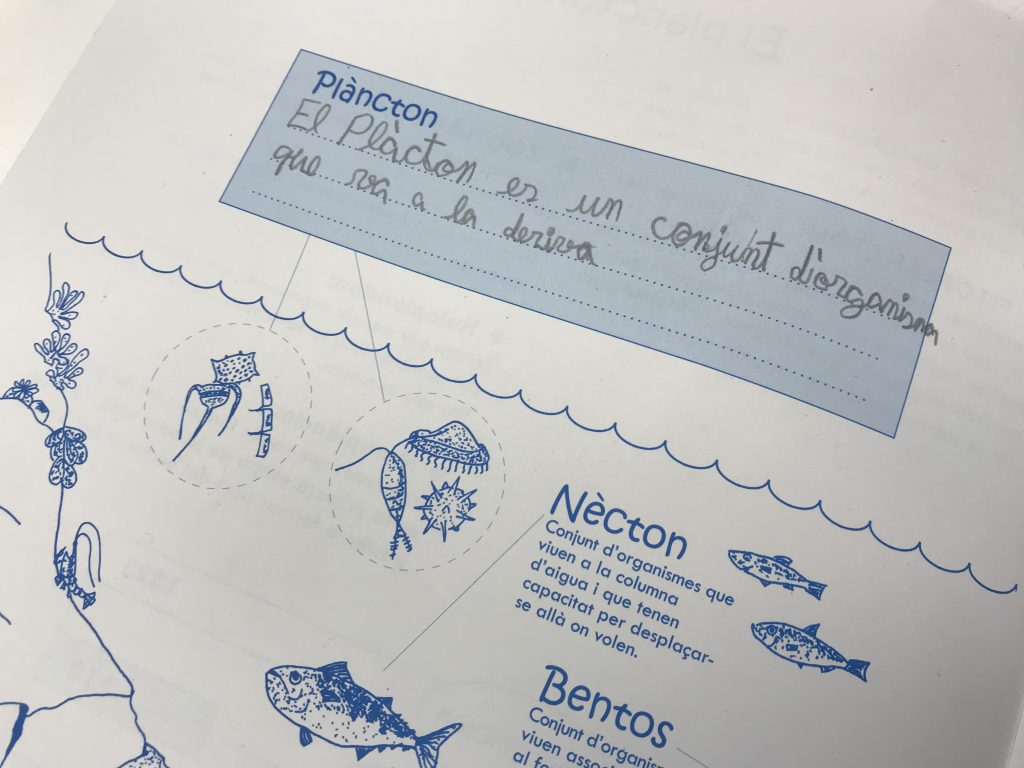 Plàncton
El Plàcton es un conjunt d'organismes
que va a la deriva
Nècton
Conjunt d'organismes que
viuen a la columna
d'aigua i que tenen
capacitat per desplaçar-
se allà on volen.
Bentos
Conjunt d'organis
viuen assoc
al fo